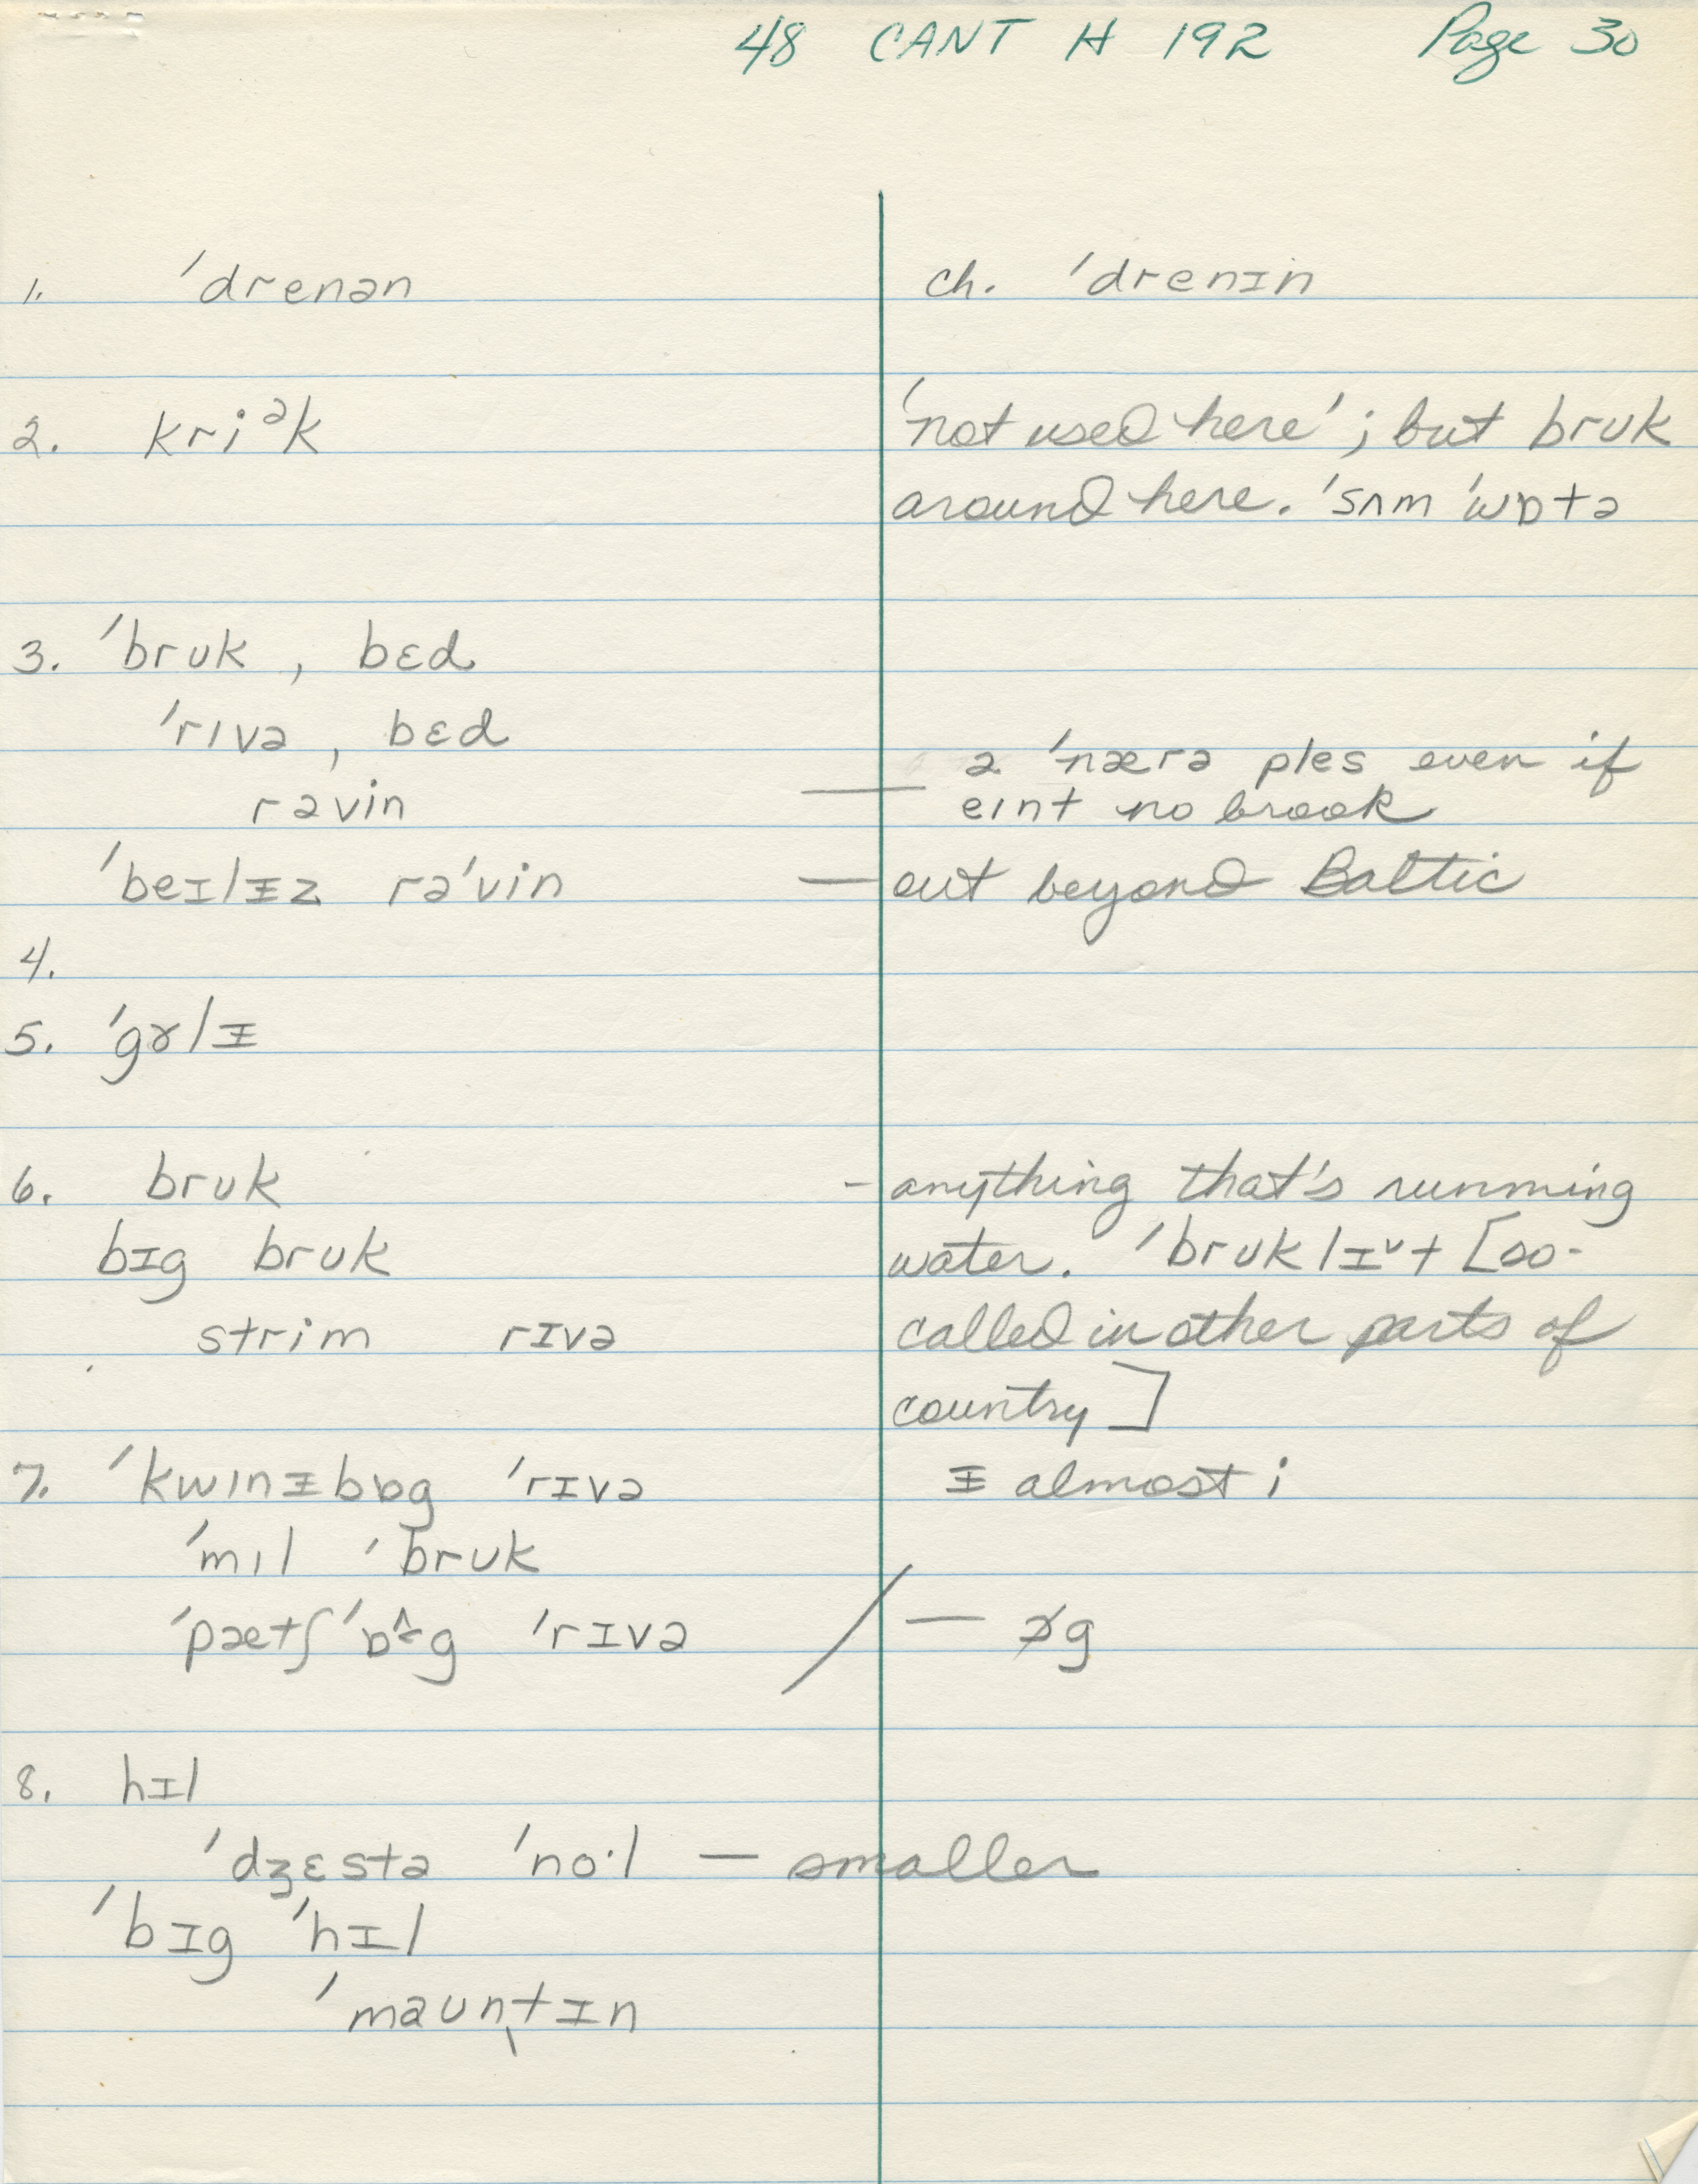 48 CANT H 192 Page 30
1. ˈdrenən ch. ˈdrenɪn
2. kriᵊk 'not used here'; but brʊk
around here. ˈsʌm ˈwɒtə
3. ˈbrʊk, bɛd
ˈrɪvə, bɛd
rəvin — ə ˈnærə ples even if
eɪnt no brook
ˈbeɪlᵻz rəˈvin — out beyond Baltic
4.
5. ˈgɤlᵻ
6. brʊk - anything that's running
bɪg brʊk water. ˈbrʊklɪᵛt [so-
strim rɪvə called in other parts of
country]
7. ˈkwɪnᵻbɒg ˈrɪvə ᵻ almost i
ˈmɪl ˈbrʊk
ˈpætʃˈɒg ˈrɪvə / — g
8. hɪl
ˈdʒɛstə ˈno·l — smaller
ˈbɪg ˈhɪl
ˈmaʊntɪn